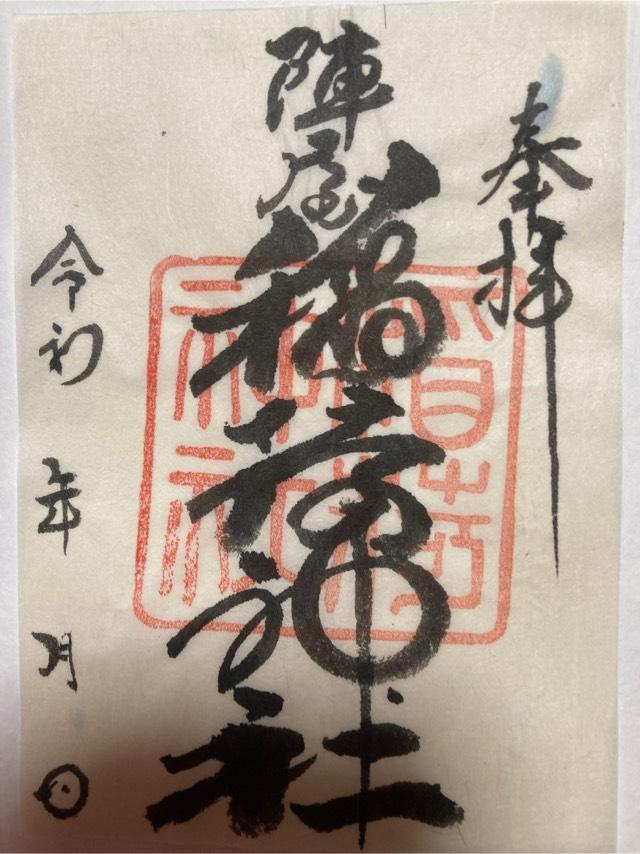 奉拝
陣屋
稲荷神社
令和 年 月 日